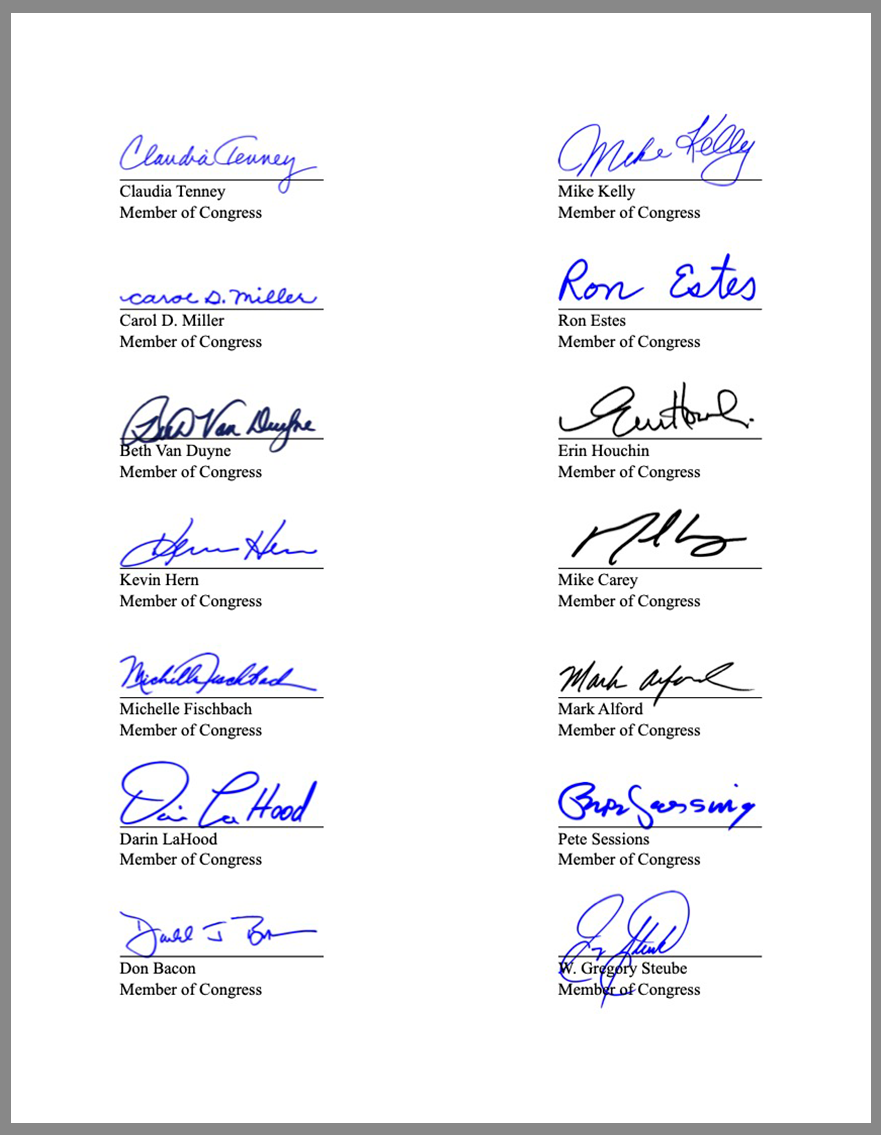 Claudia Tenney
Mike Kelly
Claudia Tenney
Mike Kelly
Member of Congress
Member of Congress
Carol D. Miller
Ron Estes
Carol D. Miller
Ron Estes
Member of Congress
Member of Congress
Beth Van Duyne
Beth Van Duyne
Erin Houchin
Member of Congress
Member of Congress
Kevin Hern
Mike Carey
Member of Congress
Member of Congress
Michelle Fischbach
Mark Alford
Michelle Fischbach
Mark Alford
Member of Congress
Member of Congress
LaHood
Darin LaHood
Pete Sessions
Member of Congress
Member of Congress
Don Bacon
W. Gregory Steube
Member of Congress
Member of Congress